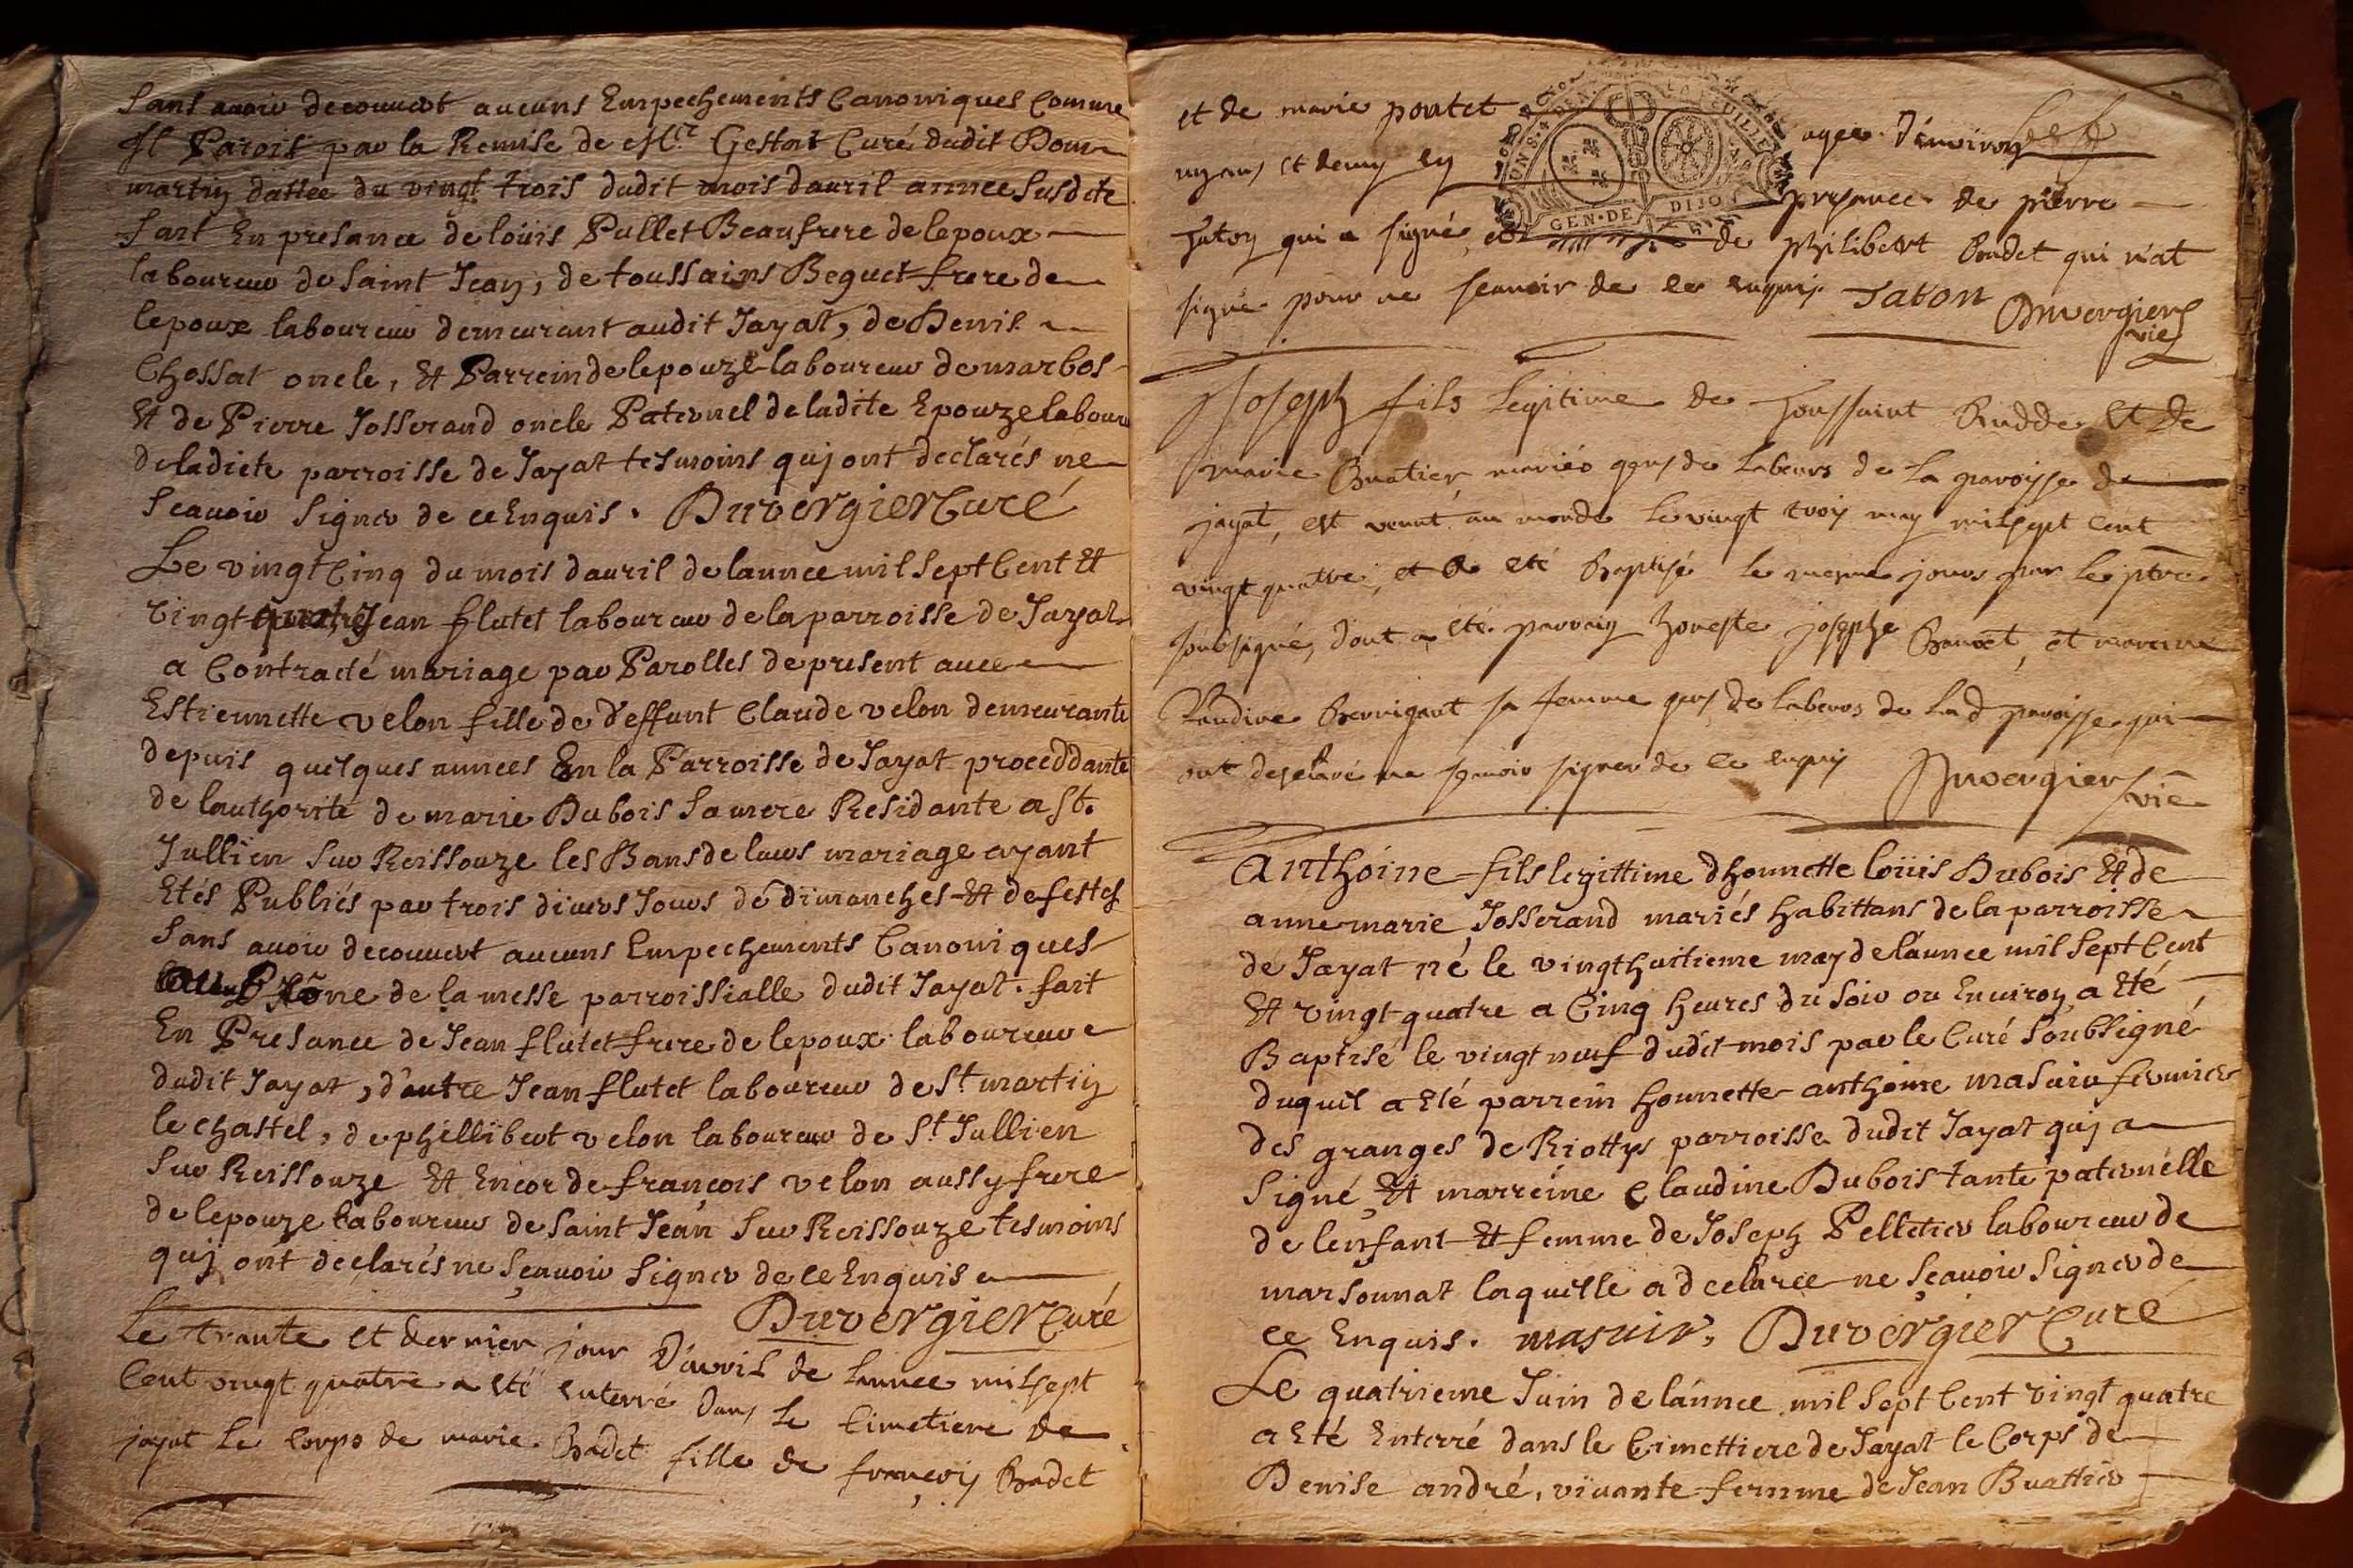 sans avoir decouvert aucuns Empechements Canoniques Comme
Il Parois par la Remise de Mre Gestat Curé dudit Dom
martin dattée du vingt trois dudit mois dauril annee susdite
fait En presance de loüis Pullet Beaufrere de lepoux
laboureur de saint Jean, de toussains Beguet frere de
lepoux laboureur demeurant audit Jayat, de Denis
Chossat oncle, Et Parrein de lepouze laboureur de marbos
Et de Pierre Josserand oncle Paternel de ladite Epouze labour
de ladicte parroisse de Jayat tesmoins quj ont declarés ne
sçauoir signer de ce Enquis. Duvergier Curé
Le vingt Cinq du mois dauril de lannee mil sept Cent Et
vingt quatre Jean flutet laboureur de la parroisse de Jayat
a Contracté mariage par Parolles de present auec
Estiennette velon fille de deffunt Claude velon demeurante
depuis quelques annees En la Parroisse de Jayat proceddante
de lauthorité de marie Dubois sa mere Residante a St.
Jullien sur Reissouze les Bans de leurs mariage ayant
Etés Publiés par trois diuers Jours de dimanches Et de festes
sans auoir decouuert aucuns Empechements Canoniques
au Prône de la messe parroissialle dudit Jayat. fait
En Presance de Jean flutet frere de lepoux laboureur
dudit Jayat, d'autre Jean flutet laboureur de St martin
le chastel, de phillibert velon laboureur de St Jullien
sur Reissouze Et Encor de françois velon aussy frere
de lepouze laboureur de saint Jean sur Reissouze tesmoins
quj ont declarés ne sçauoir signer de ce Enquis
Duvergier Curé
Le trante et dernier jour d'avril de lannee mil sept
Cent vingt quatre a été enterré dans le Cimetiere de
jayat le Corps de marie Badet fille de françois Badet
et de marie pontet agée d'environ
et demy en presance de pierre
Jaton qui a signé et de philibert Badet qui n'at
signé pour ne scauoir de ce enquis. Jaton Duvergier
vic
GEN·DE DIJO
Joseph fils legitime de Toussaint Rudde et de
marie Buatier mariés gens de labeurs de la paroisse de
jayat, est venut au monde le vingt trois may mil sept cent
vingt quattre, et a eté Baptisé le mesme jours par le ptre
soubsigné, dont a été parrain honeste josephe Bouvet, et maraine
Claudine Brevigant sa femme gens de labeurs de lad paroisse qui
ont desclaré ne sçauoir signer de ce enquis Duvergier
vic
Anthoine fils legittime dhonnette loüis Dubois Et de
anne marie Josserand mariés habittans de la parroisse
de Jayat né le vingt huitieme may de lannee mil sept Cent
Et vingt quatre a Cinq heures du soir ou Enuiron a Eté
Baptisé le vingt neuf dudit mois par le Curé soubsigné
duquel a eté parrein honnette anthoine masuir fermier
des granges de Riottys parroisse dudit Jayat quj a
signé, Et marreine Claudine Dubois tante paternelle
de lenfant Et femme de Joseph Pelletier laboureur de
marsonnat laquelle a declaree ne sçauoir signer de
ce Enquis. masuir, Duvergier Curé
Le quatrieme Juin de lannee mil sept Cent vingt quatre
a Eté Enterré dans le Cimettiere de Jayat le Corps de
Denise andré, viuante femme de Jean Buattier